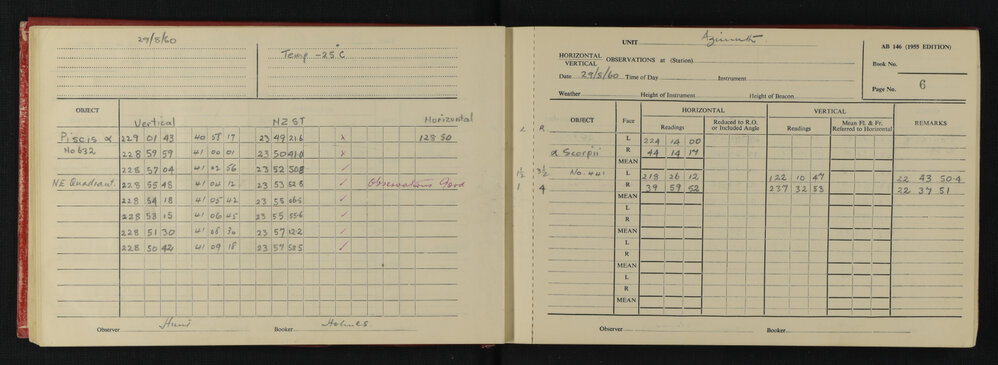 29/8/60
Temp -25°C
OBJECT
Vertical NZST Horizontal
Piscis α 229 01 43 40 58 17 23 49 21.6 x 128 50
No 632 228 59 59 41 00 01 23 50 41.0 x
228 57 04 41 02 56 23 52 50.8 ✓
NE Quadrant. 228 55 48 41 04 12 23 53 52.8 ✓ Observations Good
228 54 18 41 05 42 23 55 06.5 ✓
228 53 15 41 06 45 23 55 55.6 ✓
228 51 30 41 08 30 23 57 12.2 ✓
228 50 42 41 09 18 23 57 58.5 ✓
Observer Hunt Booker Holmes
UNIT Azimuth.
AB 146 (1955 EDITION)
HORIZONTAL
VERTICAL OBSERVATIONS at (Station)
Book No.
Date 29/8/60 Time of Day Instrument
Page No. 6
Weather Height of Instrument Height of Beacon
HORIZONTAL VERTICAL
OBJECT Face Readings Reduced to R.O. or Included Angle Readings Mean Fl. & Fr. Referred to Horizontal REMARKS
L R
L 224 14 00
α Scorpii R 44 14 14
MEAN
1½ 3½ No. 441 L 218 26 12 122 10 47 22 43 50.4
1 4 R 39 59 52 237 32 53 22 37 51
MEAN
L
R
MEAN
L
R
MEAN
L
R
MEAN
Observer Booker